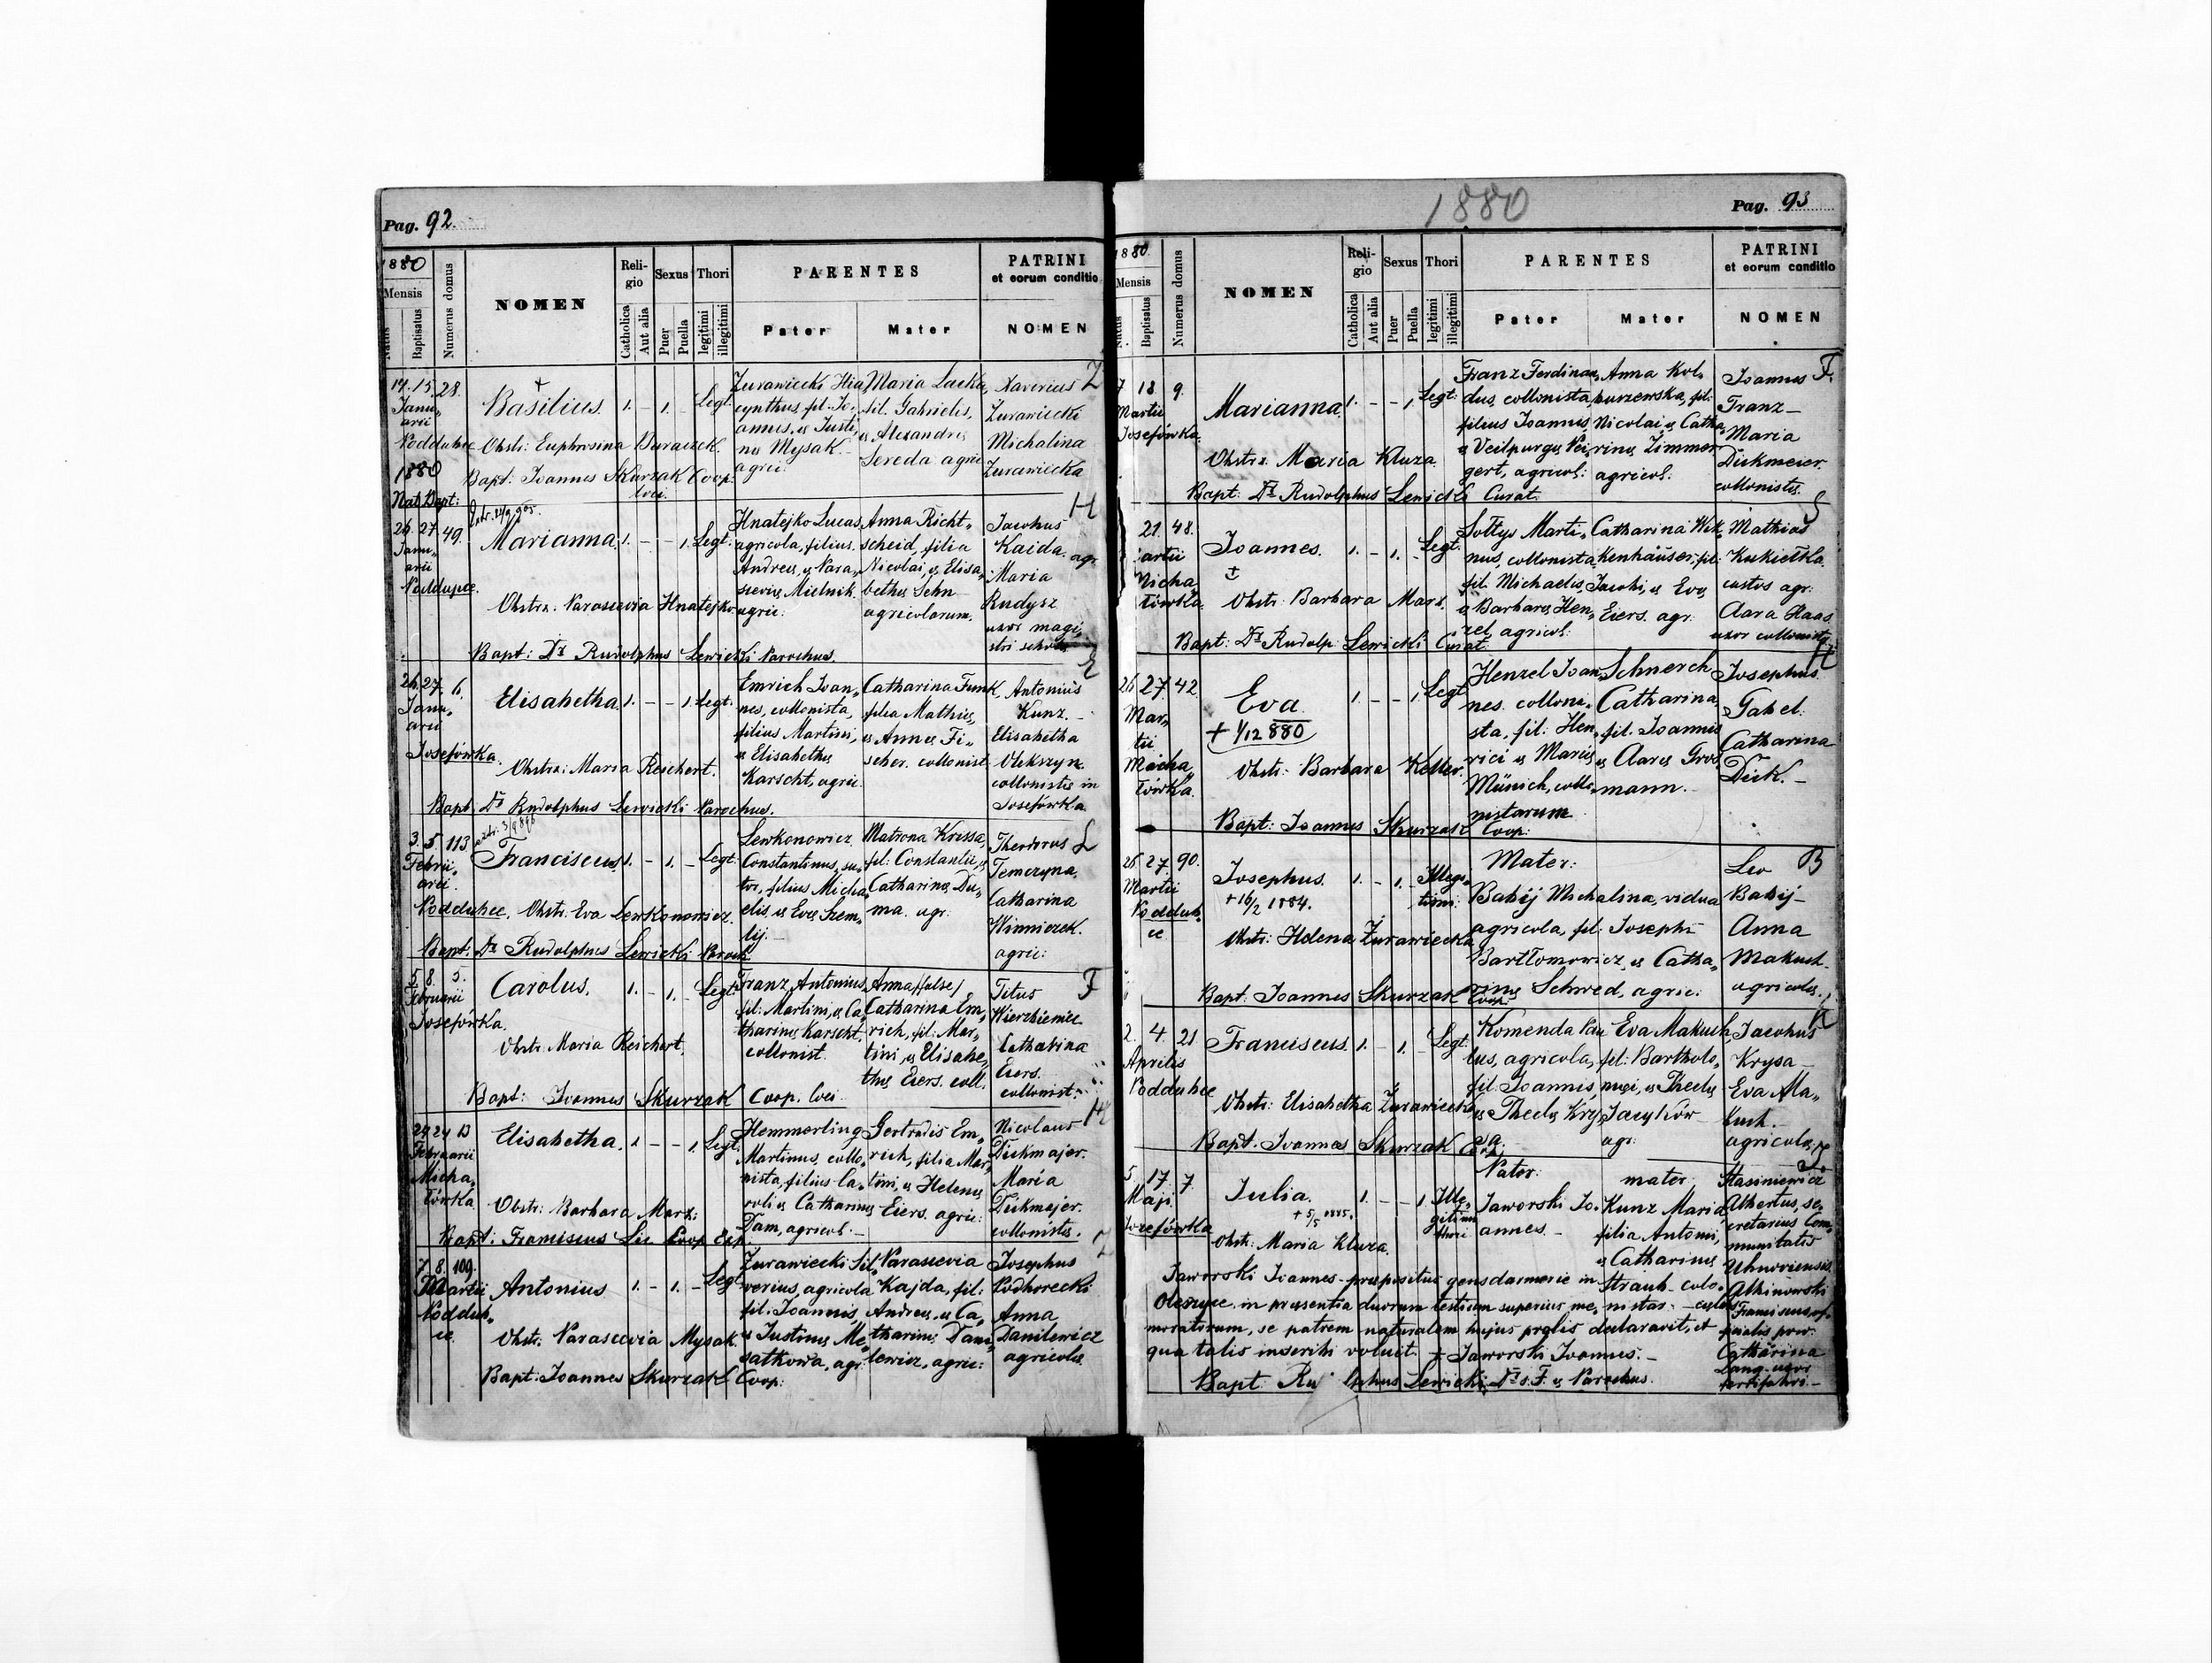 Pag. 92.
1880
Mensis
Natus
Baptisatus
Numerus domus
NOMEN
Religio
Catholica
Aut alia
Sexus
Puer
Puella
Thori
legitimi
illegitimi
PARENTES
Pater
Mater
PATRINI
et eorum conditio
NOMEN
14. 15. 28.
Janu-
arii
Poddubce
1880
Nat. Bapt:
Basilius. 1. - 1. Legt.
Obstr: Euphrosina
Bapt: Joannes Skurzak Coop.
loci.
Zurawiecki Hia-
cynthus, fil. Jo-
annis, & Justi-
na Mysak.
agric.
Maria Lacka,
fil. Gabrielis,
& Alexandra
Sereda agric.
Xaverius Z
Zurawiecki
Michalina
Zurawiecka
26. 27. 49.
Janu-
arii
Poddupce.
Marianna. 1. - - 1. Legt.
Obstr: Parascevia Hnatejko
Bapt: Dr Rudolphus Lewicki Parochus.
Hnatejko Lucas
agricola, filius
Andreæ, & Para-
sceviæ Mielnik.
agric:
Anna Richt-
scheid, filia
Nicolai, & Elisa-
bethæ Sehn
agricolarum.
Jacobus H
Kaida agr.
Maria
Rudysz
uxor magi-
stri
26. 27. 6.
Janu-
arii
Josefówka.
Elisabetha. 1. - - 1. Legt.
Obstr: Maria Reichert.
Bapt. Dr Rudolphus Lewicki Parochus.
Emrich Joan-
nes, collonista,
filius Martini,
& Elisabethæ
Karscht, agric.
Catharina Funk,
filia Mathiæ,
& Annæ Fi-
scher. collonist.
E
Antonius
Kunz. -
Elisabetha
collonistæ in
Josefówka
3. 5. 113
Febru-
arii.
Poddubce.
Franciscus. 1. - 1. - Legt:
Obstr. Eva Lewkonowicz.
Bapt: Dr Rudolphus Lewicki Paroch.
Lewkonowicz
Constantinus, su-
tor, filius Micha-
elis, & Evæ Szem-
lij.
Matrona Krissa,
fil: Constantii, &
Catharina Du-
ma. agr.
Theodorus L
Temczyna,
Catharina
Winniczek.
agric:
5. 8. 5.
Februarii
Josefówka.
Carolus. 1. - 1. - Legt:
Obstr. Maria Reichert.
Bapt: Joannes Skurzak Coop. loci.
Franz Antonius
fil: Martini, & Ca-
tharinæ Karscht.
collonist.
Anna /false/
Catharina Em-
rich, fil: Mar-
tini, & Elisabe-
thæ Eiers. coll.
Titus F
Wierzbieniec
Catharina
Eiers.
collonist:
24 24 13
Februarii
Micha-
łówka
Elisabetha. 1 - - 1. Legt.
Obstr: Barbara Marz:
Bapt: Franciscus Lic Coop. Exp.
Hemmerling
Martinus, collo-
nista, filius Ca-
roli & Catharinæ
Dam, agricol. -
Gertrudis Em-
rich, filia Mar-
tini, & Helenæ
Eiers. agric:
Nicolaus H
Dickmajer.
Maria
Dickmajer.
collonistæ.
7. 8. 109.
Martii
Poddub-
ce.
Antonius 1. - 1. - Legt.
Obstr. Parascevia Mysak.
Bapt: Joannes Skurzak Coop:
Zurawiecki Sil-
verius, agricola
fil: Joannis,
& Justinæ Me-
satkowa, agr.
Parascevia
Kajda, fil:
Andreæ, & Ca-
tharinæ Dani-
lewicz, agric:
Z
Josephus
Podhorecki
Anna
Danilewicz
agricolæ.
1880
Pag. 93
1880.
Mensis
Natus
Baptisatus
Numerus domus
NOMEN
Religio
Catholica
Aut alia
Sexus
Puer
Puella
Thori
legitimi
illegitimi
PARENTES
Pater
Mater
PATRINI
et eorum conditio
NOMEN
7 18 9.
Martii
Josefówka.
Marianna. 1. - - 1. Legt:
Obstr. Maria Kluza.
Bapt: Dr Rudolphus Lewicki Curat.
Franz Ferdinan-
dus, collonista,
filius Joannis,
& Veilpurgæ Wei-
gert, agricol:
Anna Kol-
purzewska, fil:
Nicolai & Catha-
rinæ Zimmer
agricol:
Joannes F.
Franz -
Maria
Dickmeier.
collonistæ.
21. 48.
artii
Micha-
łówka.
Joannes. 1. - 1. - Legt:
Obstr. Barbara Marz.
Bapt: Dr Rudolp. Lewicki Curat.
Sołtys Marti-
nus, collonista
fil. Michaelis,
& Barbaræ Hen-
zel, agricol:
Catharina Wik-
kenhäuser, fil:
Jacobi, & Evæ
Eiers. agr.
S
Mathias
Kukiełka.
custos agr:
Clara Haas
uxor collonistæ
26 27 42
Mar-
tii
Micha-
łówka.
Eva 1. - - 1. Legt
+ 1/12 880
Obstr: Barbara Keller.
Bapt: Joannes Skurzak Coop:
Henzel Joan-
nes. colloni-
sta, fil: Hen-
rici & Mariæ
Münich, collo-
nistarum
Schnerch
Catharina,
fil. Joannis
& Claræ Gros-
mann. -
H
Josephus
Gabel.
Catharina
Dick. -
26 27 90.
Martii
Poddub-
ce
Josephus. 1. - 1. - Illegi-
timi.
+ 16/2 1884.
Obstr: Helena Żurawiecka
Bapt. Joannes Skurzak Coop.
Mater:
Babij Michalina, vidua
agricola, fil: Josephi
Bartłomowicz, & Catha-
rinæ Schwed, agric:
Leo B
Babij -
Anna
Makuch.
agricolæ.
2. 4. 21
Aprilis
Poddubce
Franciscus. 1. - 1. - Legt:
Obstr: Elisabetha Żurawiecka
Bapt. Joannes Skurzak Coop.
Komenda Pau-
lus, agricola,
fil: Joannis,
& Theclæ Kry-
sa.
Eva Makuch,
fil: Bartholo-
mæi, & Theclæ
Jacyków
agr:
K
Jacobus
Krysa -
Eva Ma-
kuch. -
agricolæ.
5. 17. 7.
Maji
Josefówka
Julia. 1. - - 1 Ille-
gitimi
thori
+ 5/5 1885.
Obstr: Maria Kluza.
Pater:
Jaworski Jo-
annes. -
mater
Kunz Maria
filia Antonii,
& Catharinæ
Straub - colo-
nistar.
J.
Stasiniewicz
Albertus, se-
cretarius Com-
munitatis
Uhnoviensis.
Albinowski
Franciscus of-
ficialis priv.
Catharina
Lang uxor
Jaworski Joannes - præpositus gensdarmeriæ in
Oleszyce. in præsentia duorum testium superius me-
moratorum, se patrem naturalem hujus prolis declaravit, et
qua talis inscribi voluit. + Jaworski Joannes. -
Bapt: Ru lphus Lewicki, Dr s. T. & Parochus.